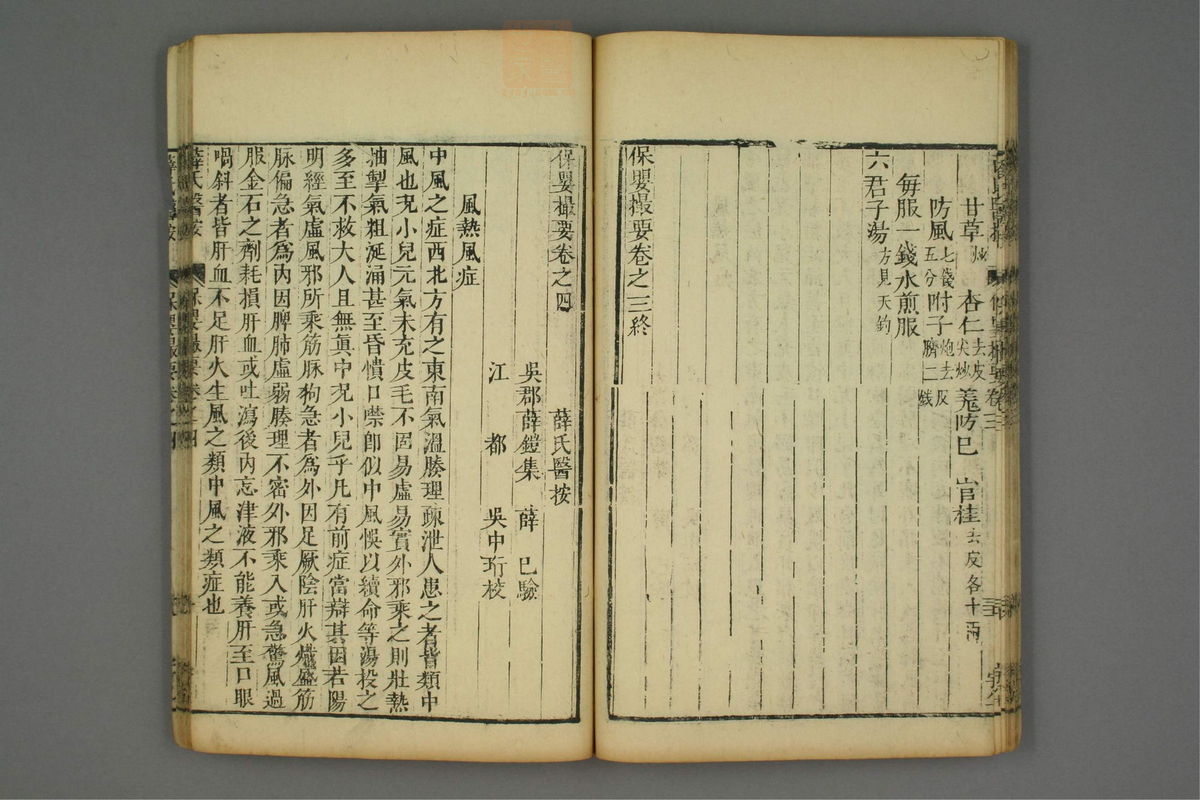 甘草炒 杏仁去皮尖炒 羌防已 官桂去皮各十兩
防風七錢五分 附子炮去皮臍二錢
每服一錢水煎服
六君子湯方見天釣
保嬰撮要卷之三終
保嬰撮要卷之四
薛氏醫按
吳郡薛鎧集 薛 已驗
江 都 吳中珩校
風熱風症
中風之症西北方有之東南氣溫腠理疎泄人患之者皆類中
風也况小兒元氣未充皮毛不固易虛易實外邪乘之則壯熱
抽掣氣粗涎涌甚至昏憒口噤卽似中風悞以續命等湯投之
多至不救大人且無眞中况小兒乎凡有前症當辯其因若陽
明經氣虛風邪所乘筋脉狥急者爲外因足厥陰肝火熾盛筋
脉偏急者爲內因脾肺虛弱腠理不密外邪乘入或急驚風過
服金石之劑耗損肝血或吐瀉後內忘津液不能養肝至口眼
喎斜者皆肝血不足肝火生風之類中風之類症也
薛氏醫按 保嬰撮要卷之四